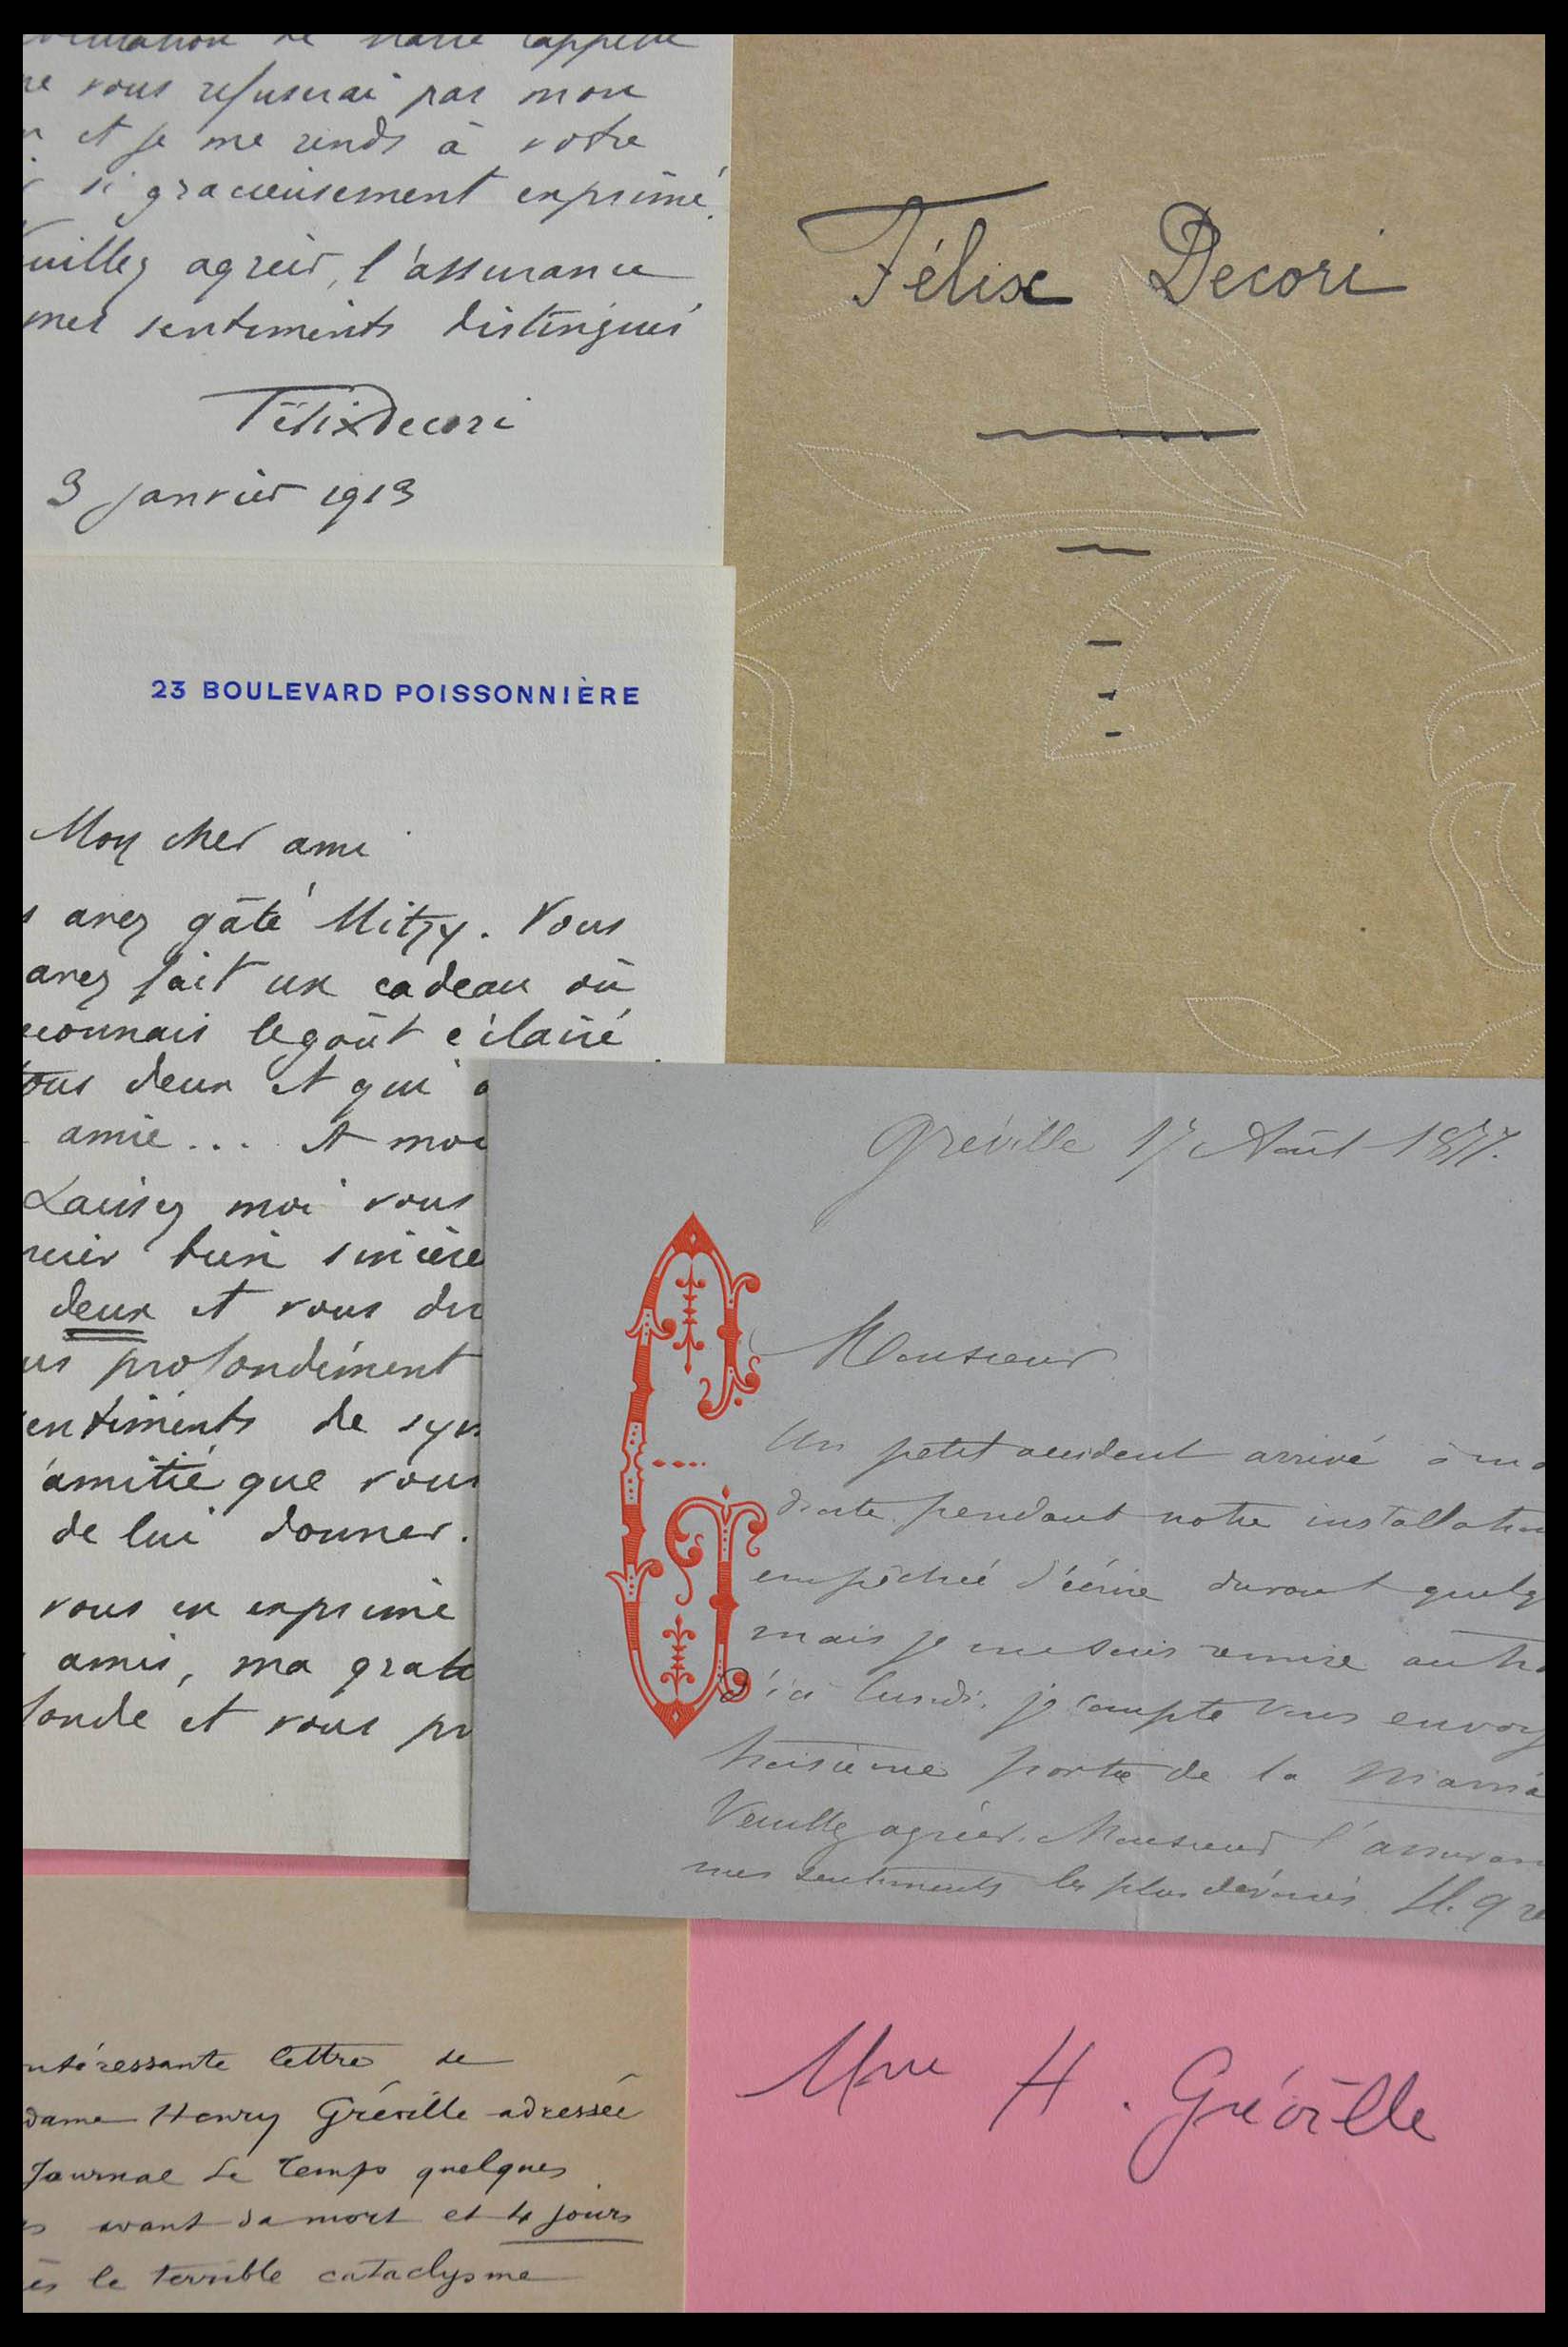 vous refuserai pas mon
et je me rends à votre
si gracieusement exprimé.
agréer, l'assurance
mes sentiments distingués
Félix Decori
3 janvier 1913
Félix Decori
23 BOULEVARD POISSONNIÈRE
Mon cher ami
avez gâté Mitzy. Vous
avez fait un cadeau où
le goût éclairé
deux et qui
amie... et moi
Laissez moi vous
bien
deux et vous
profondément
de
amitié que vous
de lui donner.
vous en exprime
amis, ma
et vous
Gréville 17 Août 1877.
Monsieur
Un petit accident arrivé à
droite pendant notre
empêchée d'écrire durant
mais je me suis remise
d'ici lundi, je compte vous
troisième partie de la
Veuillez agréer, Monsieur
mes sentiments les plus dévoués. H.
lettre de
Henry Gréville adressée
Journal Le Temps quelques
avant sa mort et 4 jours
le terrible cataclysme
Mme H. Gréville